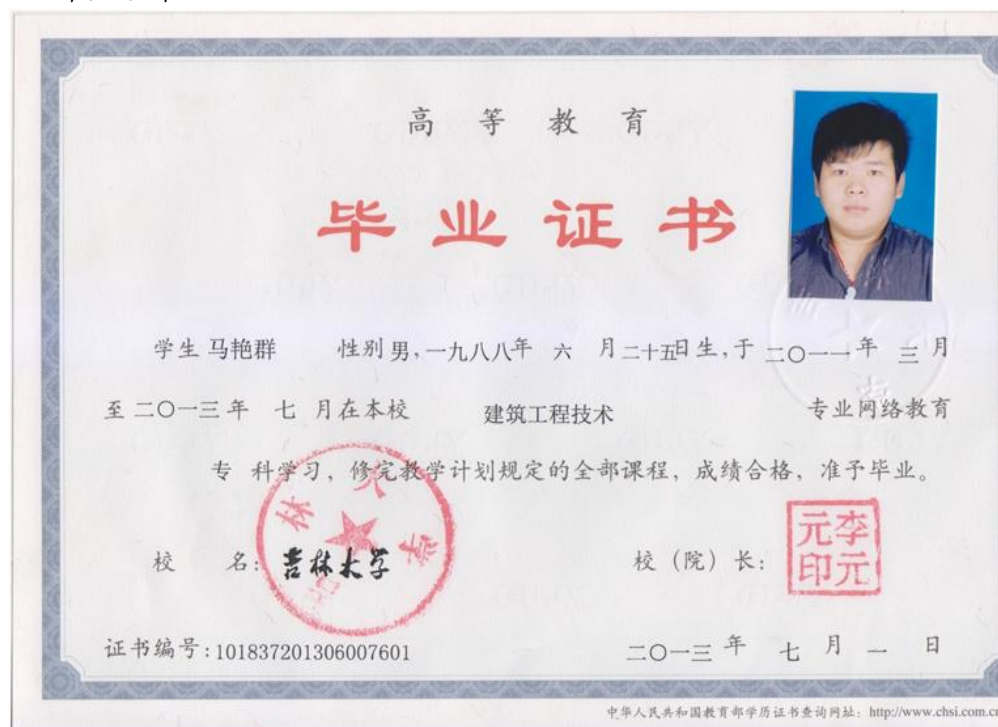 高等教育
毕业证书
学生 马艳群 性别 男, 一九八八年 六 月 二十五日生, 于 二〇一一年 三 月
至 二〇一三年 七 月在本校 建筑工程技术 专业网络教育
专 科学习, 修完教学计划规定的全部课程, 成绩合格, 准予毕业。
校 名: 吉林大学
校 (院) 长: 李元元印
证书编号: 101837201306007601
二〇一三 年 七 月 一 日
中华人民共和国教育部学历证书查询网址: http://www.chsi.com.cn